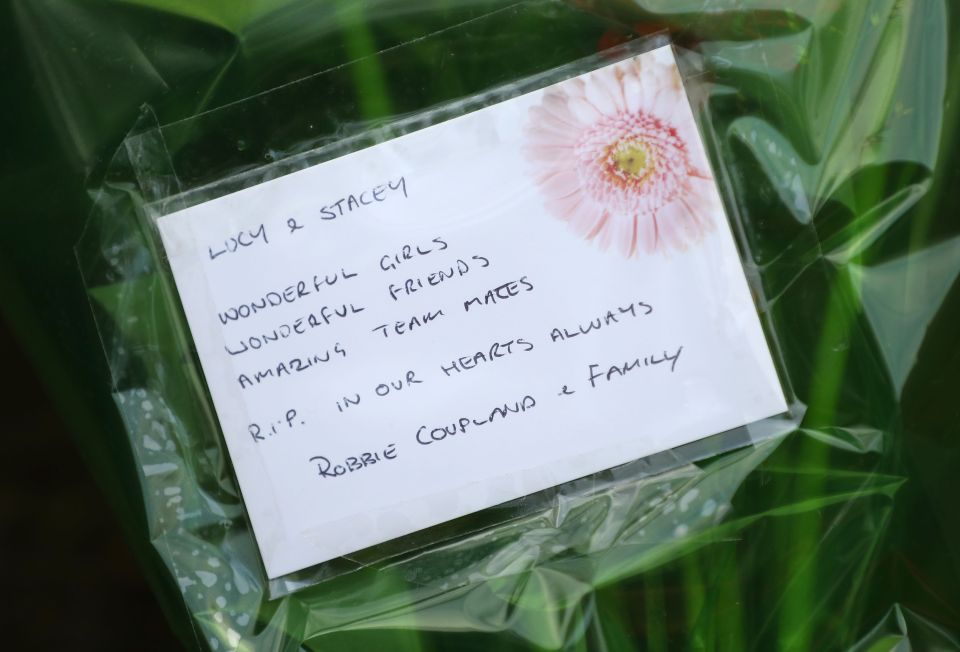 LUCY & STACEY
WONDERFUL GIRLS
WONDERFUL FRIENDS
AMAZING TEAM MATES
R.I.P. IN OUR HEARTS ALWAYS
ROBBIE COUPLAND & FAMILY